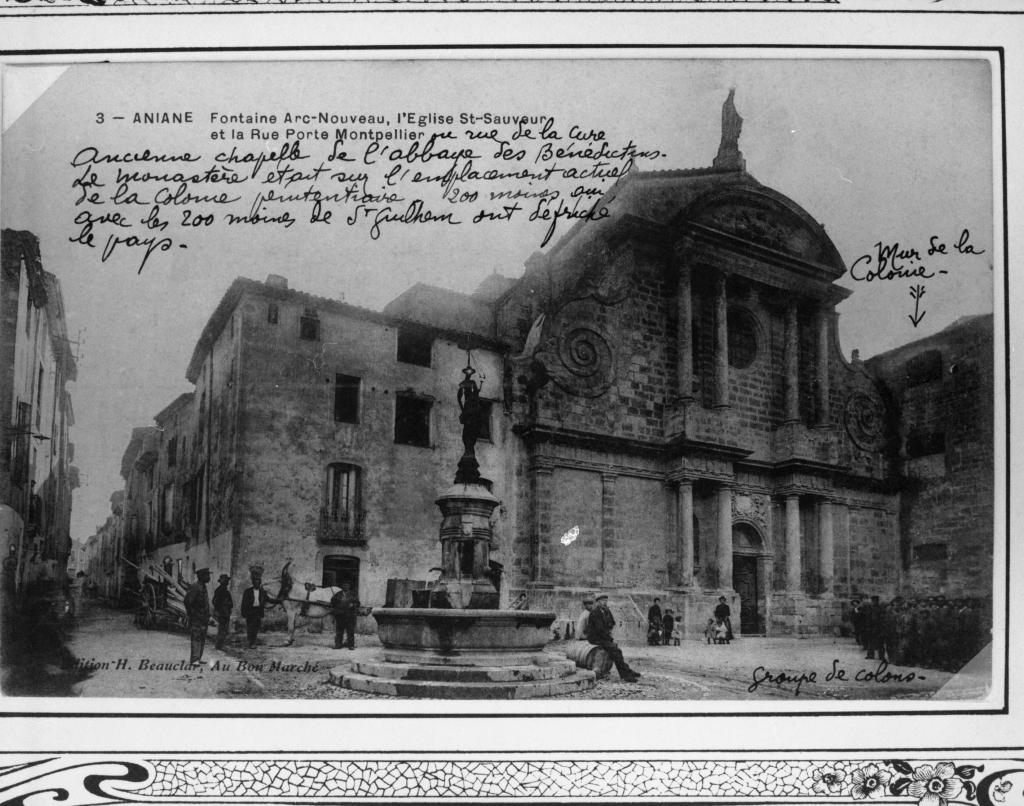 3 – ANIANE Fontaine Arc-Nouveau, l'Eglise St-Sauveur
et la Rue Porte Montpellier ou rue de la Cure
Ancienne chapelle de l'abbaye des Bénédictins.
Le monastère était sur l'emplacement actuel
de la Colonie pénitentiaire 200 moines qui
avec les 200 moines de St Guilhem ont défriché
le pays.
Mur de la
Colonie
Edition H. Beauclair, Au Bon Marché
groupe de colons